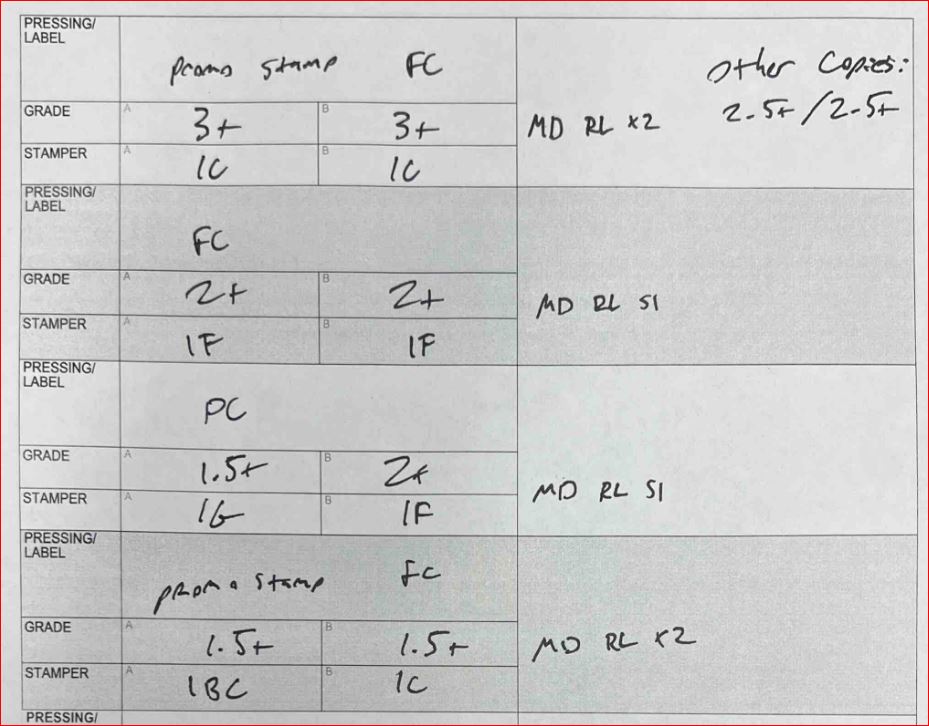 PRESSING/
LABEL
Promo Stamp FC
Other Copies:
GRADE A 3+ B 3+ MD RL x2 2.5+/2.5+
STAMPER A 1C B 1C
PRESSING/
LABEL
FC
GRADE A 2+ B 2+ MD RL S1
STAMPER A 1F B 1F
PRESSING/
LABEL
PC
GRADE A 1.5+ B 2+ MD RL S1
STAMPER A 1G B 1F
PRESSING/
LABEL
promo stamp FC
GRADE A 1.5+ B 1.5+ MD RL x2
STAMPER A 1BC B 1C
PRESSING/